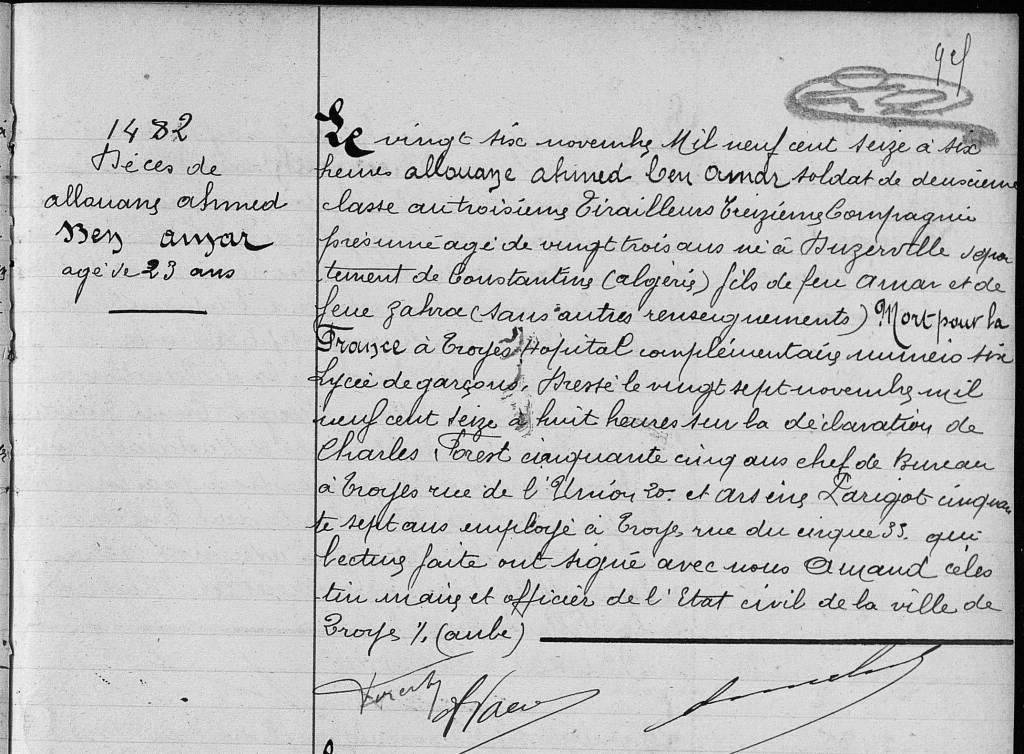 1482
Décès de
allouane ahmed
Ben amar
agé de 23 ans
Le vingt six novembre Mil neuf cent seize à six
heures allouane ahmed ben amar soldat de deuxieme
classe au troisième Tirailleurs Treizième Compagnie
présumé agé de vingt trois ans né à Duzerville dépar
tement de Constantine (algérie) fils de feu amar et de
feue Zahra (sans autres renseignements) Mort pour la
France à Troyes Hopital complémentaire numéro six
Lycée de garçons. Dressé le vingt sept novembre mil
neuf cent seize à huit heures sur la déclaration de
Charles Forest cinquante cinq ans chef de Bureau
à Troyes rue de l'Union 20. et arsène Parigot cinquan
te sept ans employé à Troyes rue du cirque 33. qui
lecture faite ont signé avec nous amand céles
tin maire et officier de l'Etat civil de la ville de
Troyes /. (aube)